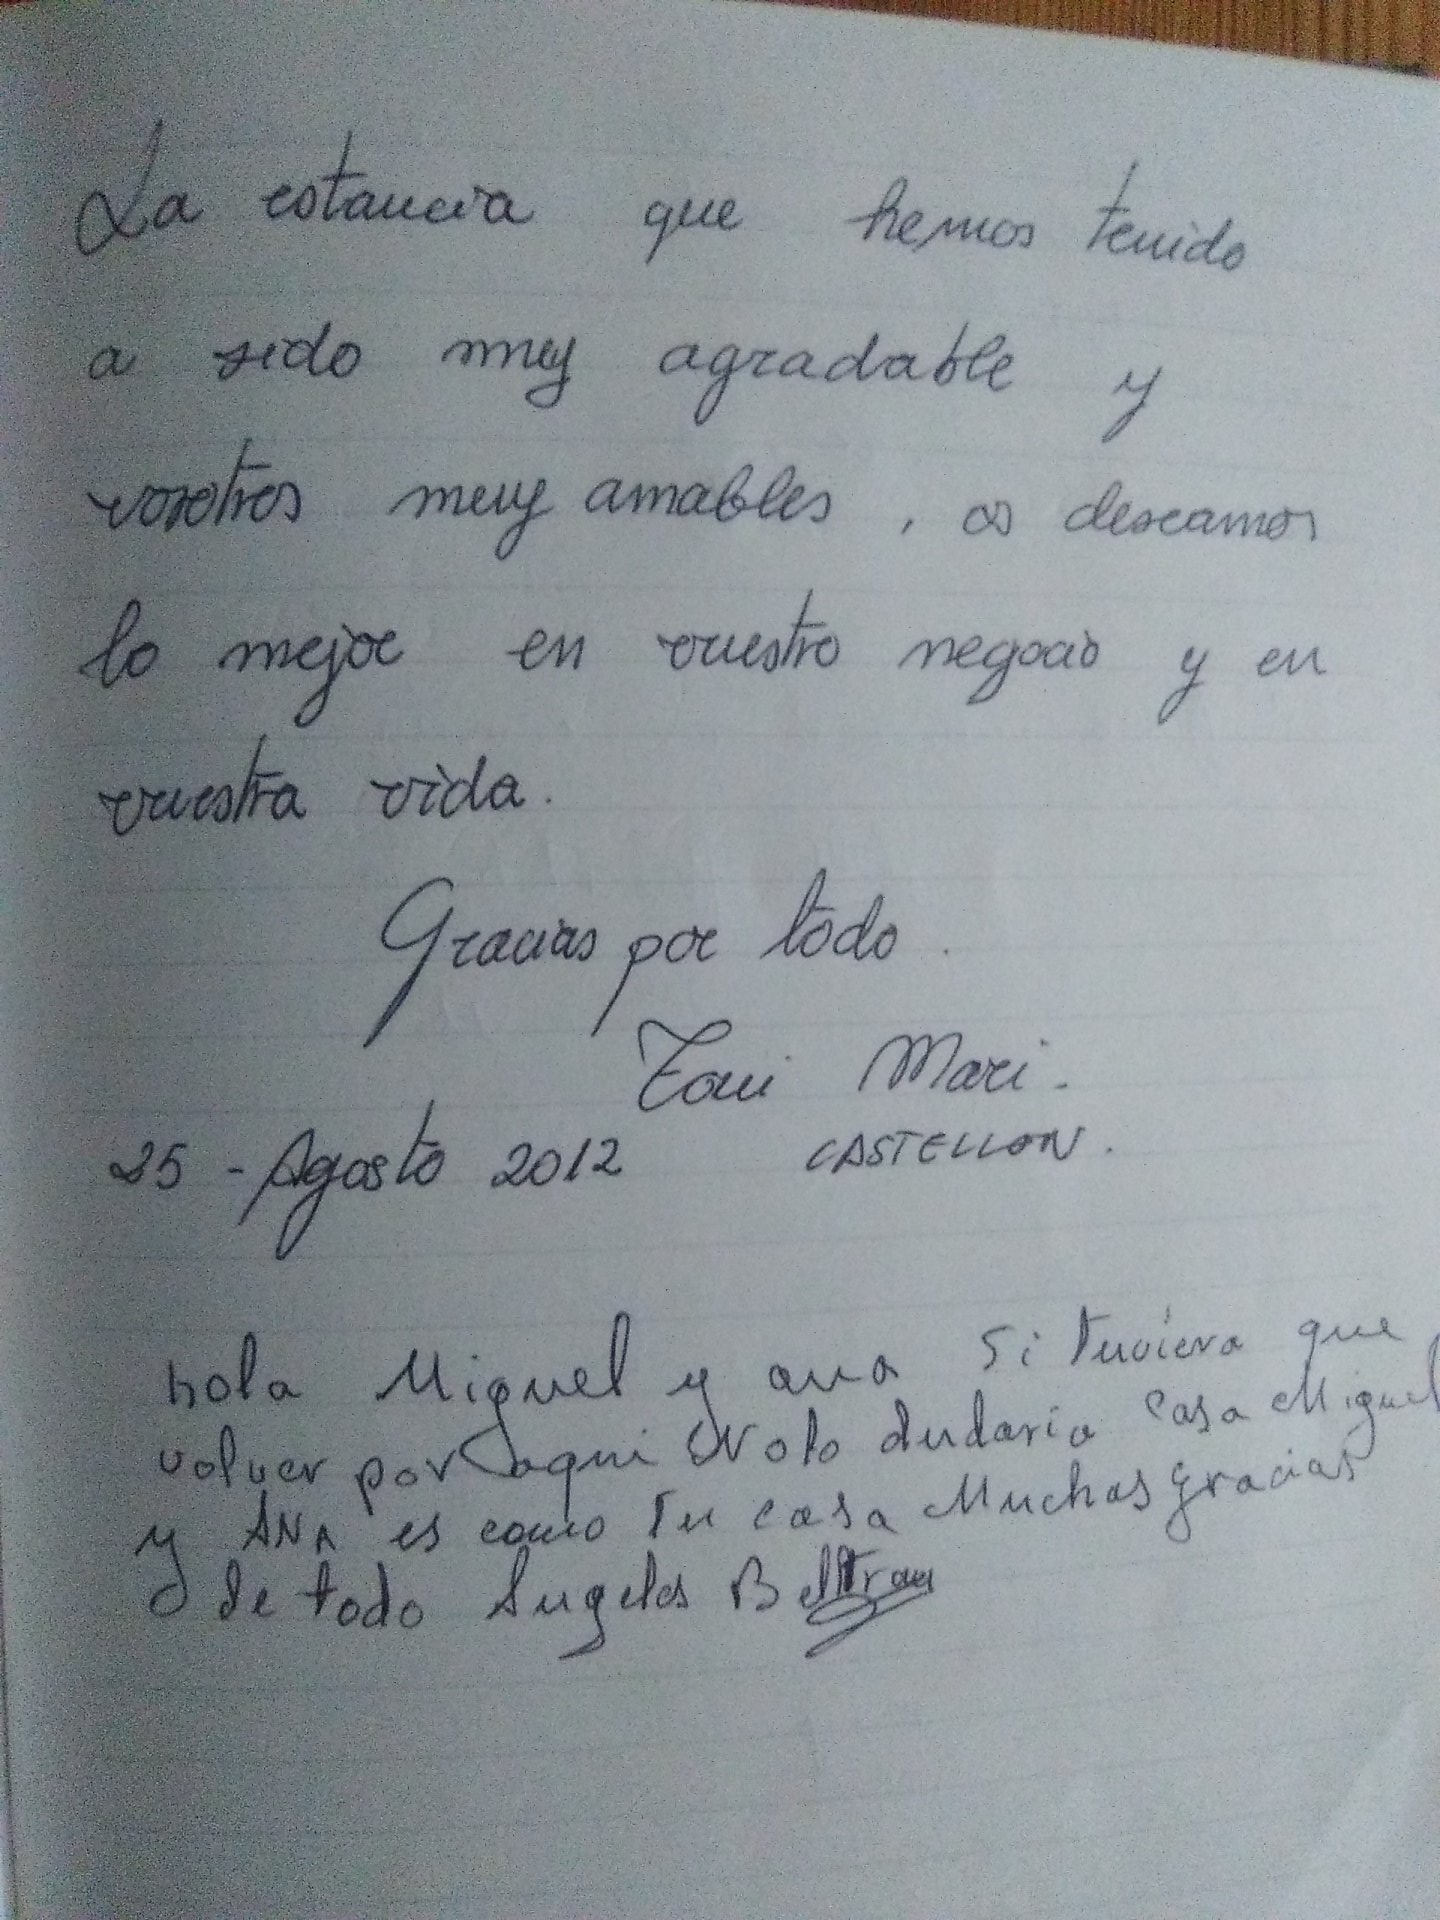 La estancia que hemos tenido
a sido muy agradable y
vosotros muy amables, os deseamos
lo mejor en vuestro negocio y en
vuestra vida.
Gracias por todo.
Toni Mari.
25 - Agosto 2012 CASTELLON.
hola Miguel y ana si tuviera que
volver por aqui No lo dudaria casa Miguel
y ANA es como tu casa Muchas gracias
de todo Angeles Beltran